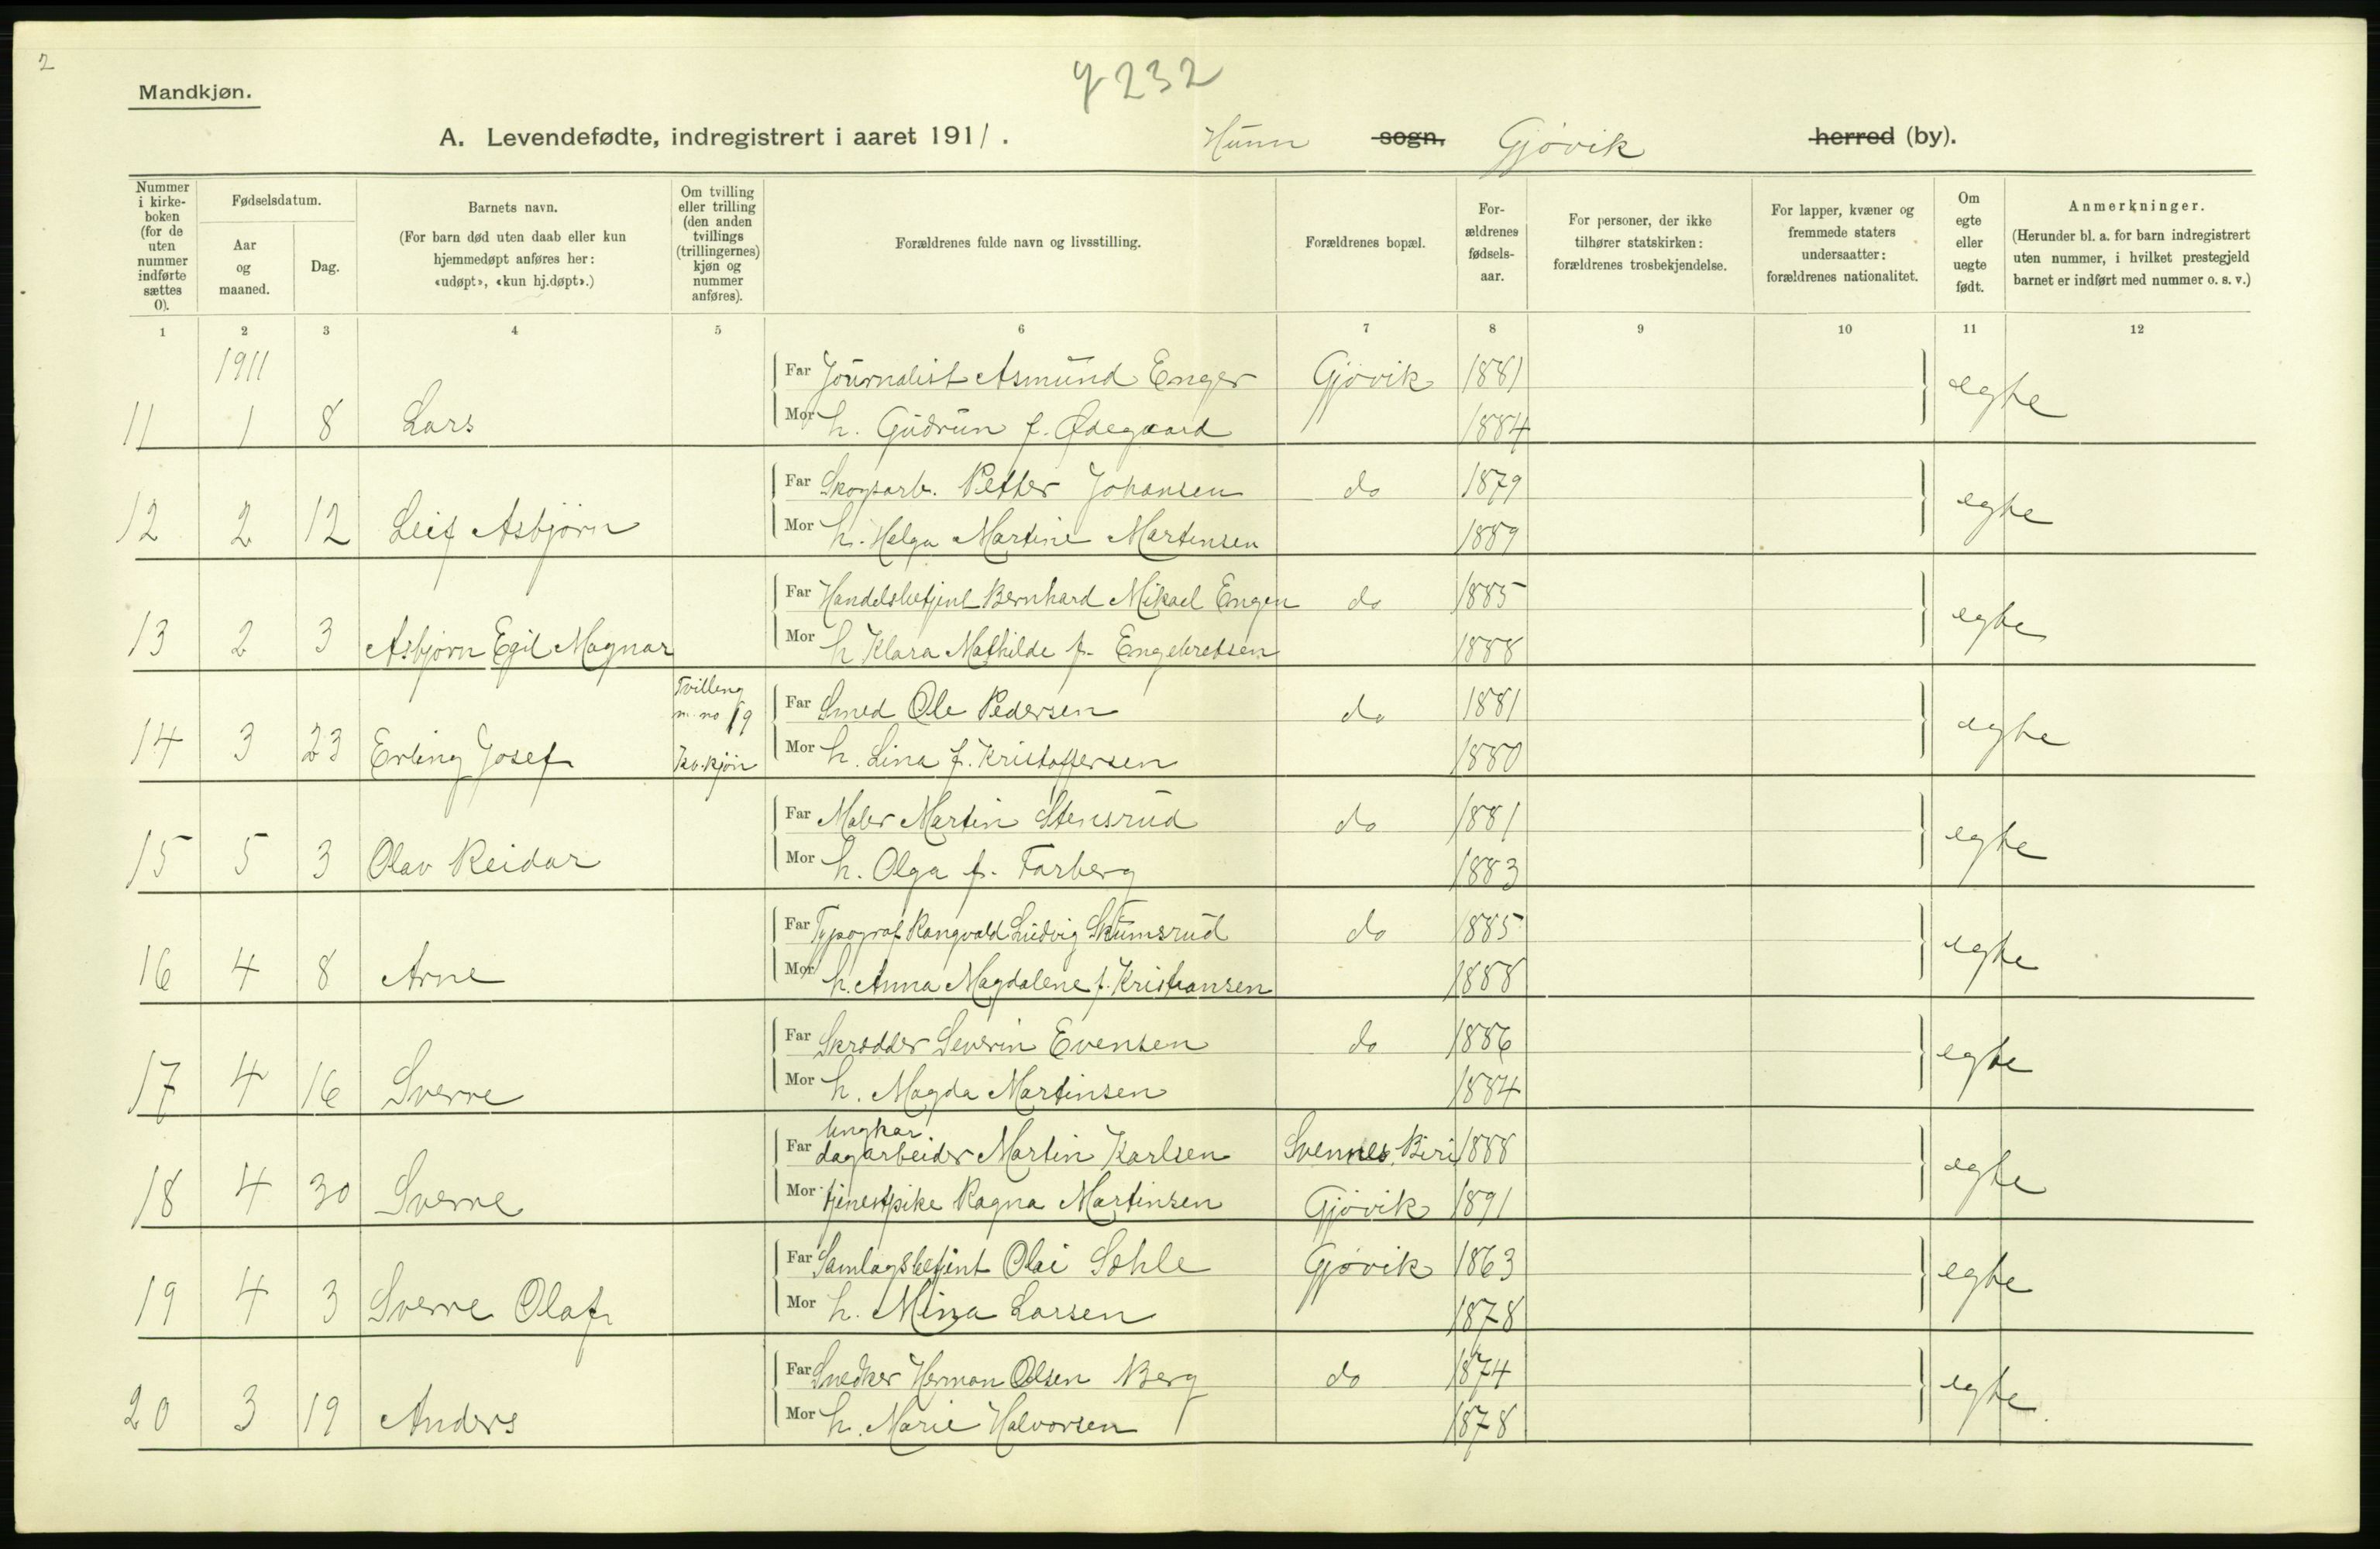 2
Mandkjøn.
4232
A. Levendefødte, indregistrert i aaret 1911. Hunn sogn. Gjøvik herred (by).
Nummer i kirke-boken (for de uten nummer indførte sættes 0).
Fødselsdatum.
Aar og maaned.
Dag.
Barnets navn.
(For barn død uten daab eller kun hjemmedøpt anføres her: «udøpt», «kun hj.døpt».)
Om tvilling eller trilling (den anden tvillings (trillingernes) kjøn og nummer anføres).
Forældrenes fulde navn og livsstilling.
Forældrenes bopæl.
For-ældrenes fødsels-aar.
For personer, der ikke tilhører statskirken: forældrenes trosbekjendelse.
For lapper, kvæner og fremmede staters undersaatter: forældrenes nationalitet.
Om egte eller uegte født.
Anmerkninger.
(Herunder bl. a. for barn indregistrert uten nummer, i hvilket prestegjeld barnet er indført med nummer o. s. v.)
1 2 3 4 5 6 7 8 9 10 11 12
1911
Far Journalist Asmund Enger Gjøvik 1881 egte
11 1 8 Lars Mor h. Gudrun f. Ødegaard 1884
Far Skogsarb. Petter Johansen do 1879 egte
12 2 12 Leif Asbjørn Mor h. Helga Martine Martinsen 1889
Far Handelsbetjent Bernhard Mikael Engen do 1885 egte
13 2 3 Asbjørn Egil Magnar Mor h Klara Mathilde f. Engebretsen 1888
Tvilling m. no 19 Far Smed Ole Pedersen do 1881 egte
14 3 23 Erling Josef Kv.kjøn Mor h. Lina f. Kristoffersen 1880
Far Maler Martin Stensrud do 1881 egte
15 5 3 Olav Reidar Mor h. Olga f. Farberg 1883
Far Typograf Rangvald Ludvig Skumsrud do 1885 egte
16 4 8 Arne Mor h. Anna Magdalene f. Kristiansen 1888
Far Skrædder Severin Evensen do 1886 egte
17 4 16 Sverre Mor h. Magda Martinsen 1884
Ungkar.
Far dagarbeider Martin Karlsen Svennes, Biri 1888 egte
18 4 30 Sverre Mor tjenestpike Ragna Martinsen Gjøvik 1891
Far Samlagsbetjent Olai Sehle Gjøvik 1863 egte
19 4 3 Sverre Olaf Mor h. Mina Larsen 1878
Far Snedker Herman Olsen Berg do 1874 egte.
20 3 19 Anders Mor h. Marie Halvorsen 1878